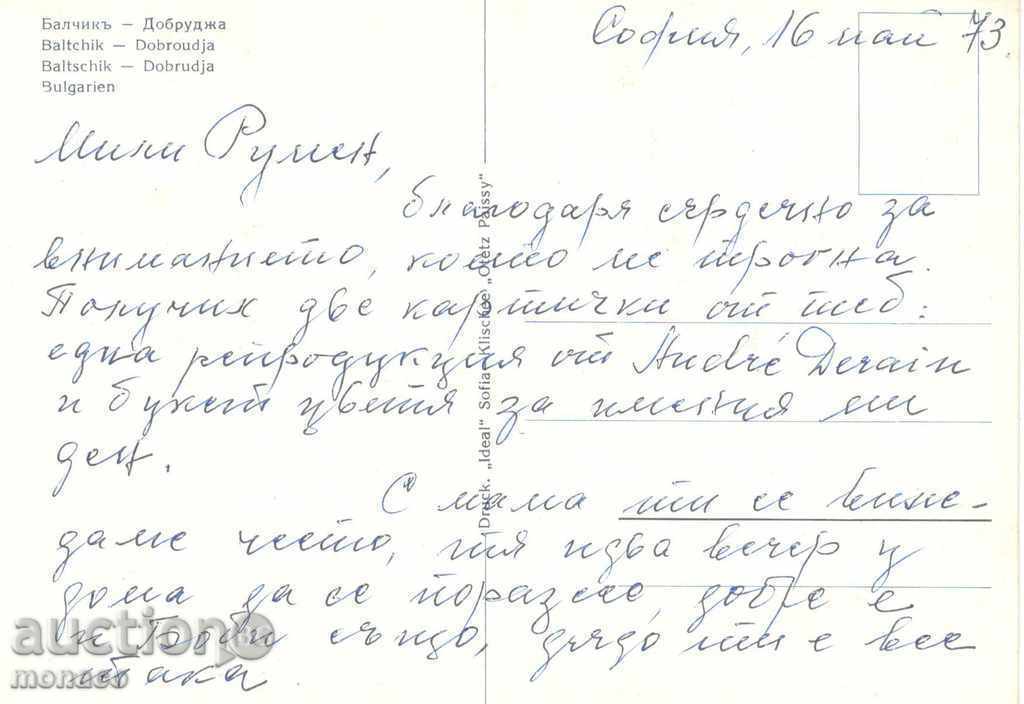 Балчикъ — Добруджа
Baltchik — Dobroudja
Baltschik — Dobrudja
Bulgarien
София, 16 май 73.
Мили Румен,
благодаря сърдечно за
вниманието, което ме трогна.
Получих две картички от теб:
една репродукция от André Derain
и букет цветя за имения ми
ден.
С мама ти се виж-
даме често, тя идва вечер у
дома да се поразсее, добре е
и Боби също, дядо ти е все
така
Druck. „Ideal" Sofia, Klischee „Otetz Paissy"
auction
monaco